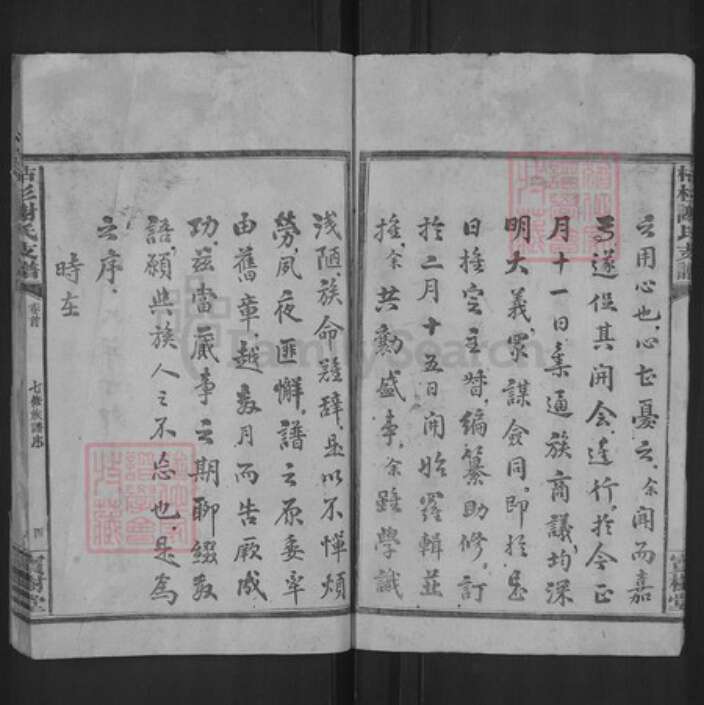 之用心也心甚憂之余聞而嘉
焉遂促其開会進行於今正
月十一日集通族商議均深
明大義眾謀僉同即於是
日推定主督編纂助修訂
於二月十五日開始羅輯並
推余共勷盛事余雖學識
浅陋族命難辭是以不憚煩
勞夙夜匪懈譜之原委率
由舊章越數月而告厥成
功茲當蕆事之期聊綴數
語願與族人之不忘也是為
之序
時在
謝氏支譜
卷首
七修族譜序
四
寶樹堂
FamilySearch